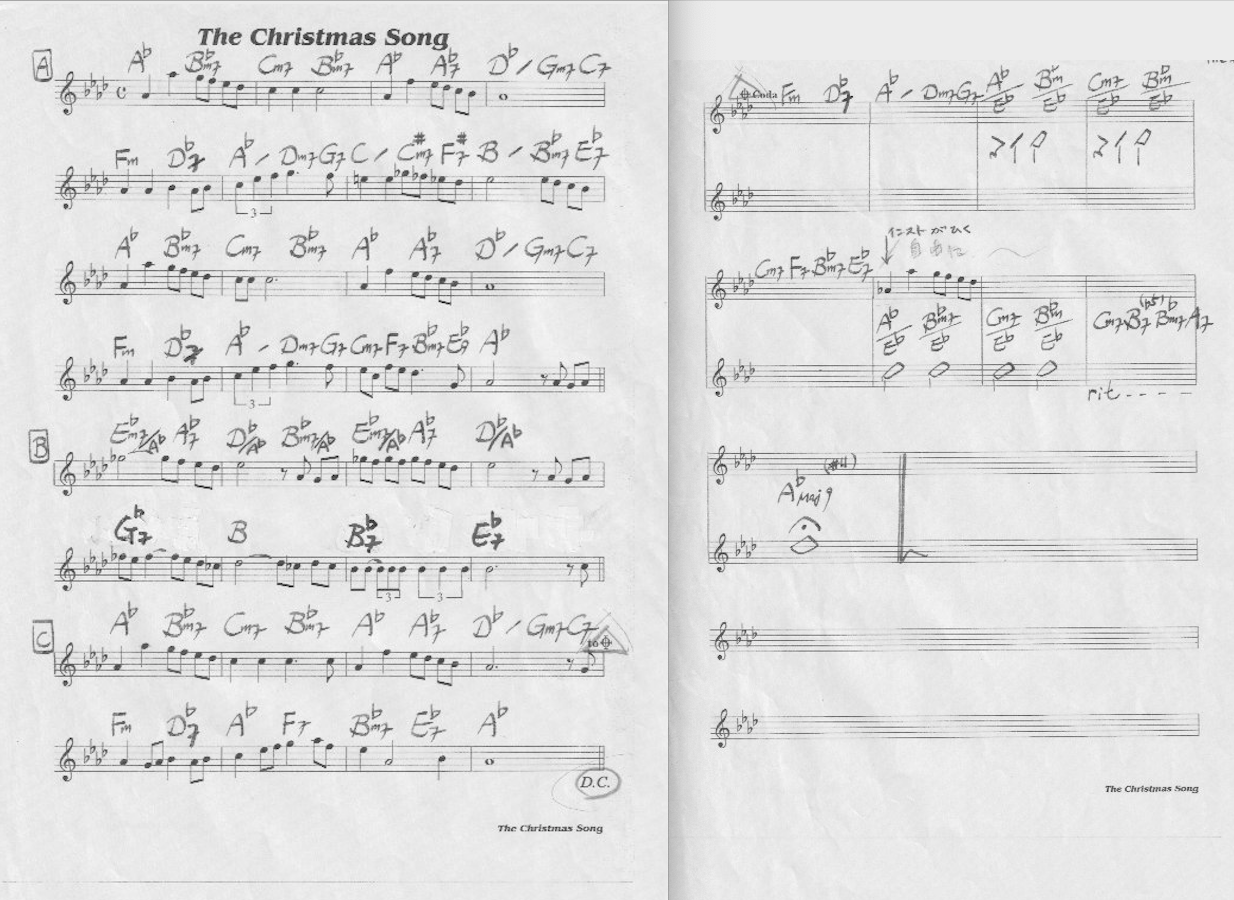 The Christmas Song
A
A♭ B♭m7 Cm7 B♭m7 A♭ A♭7 D♭ / Gm7 C7
Fm D♭7 A♭ / Dm7 G7 C / C#m7 F#7 B / B♭m7 E♭7
3
A♭ B♭m7 Cm7 B♭m7 A♭ A♭7 D♭ / Gm7 C7
Fm D♭7 A♭ / Dm7 G7 Cm7 F7 B♭m7 E♭9 A♭
3
B
E♭m7/A♭ A♭7 D♭/A♭ B♭m7/A♭ E♭m7/A♭ A♭7 D♭/A♭
G♭7 B B♭7 E♭7
3 3
C
A♭ B♭m7 Cm7 B♭m7 A♭ A♭7 D♭ / Gm7 C7
to
Fm D♭7 A♭ F7 B♭m7 E♭7 A♭
D.C.
The Christmas Song
Coda Fm D♭7 A♭ / Dm7 G7 A♭/E♭ B♭m/E♭ Cm7/E♭ B♭m/E♭
インストがひく
自由に
Cm7 F7 B♭m7 E♭7
A♭/E♭ B♭m7/E♭ Cm7/E♭ B♭m/E♭ Cm7 B7(♭5) B♭m7 A7
rit - - - -
A♭Maj9 (#11)
The Christmas Song